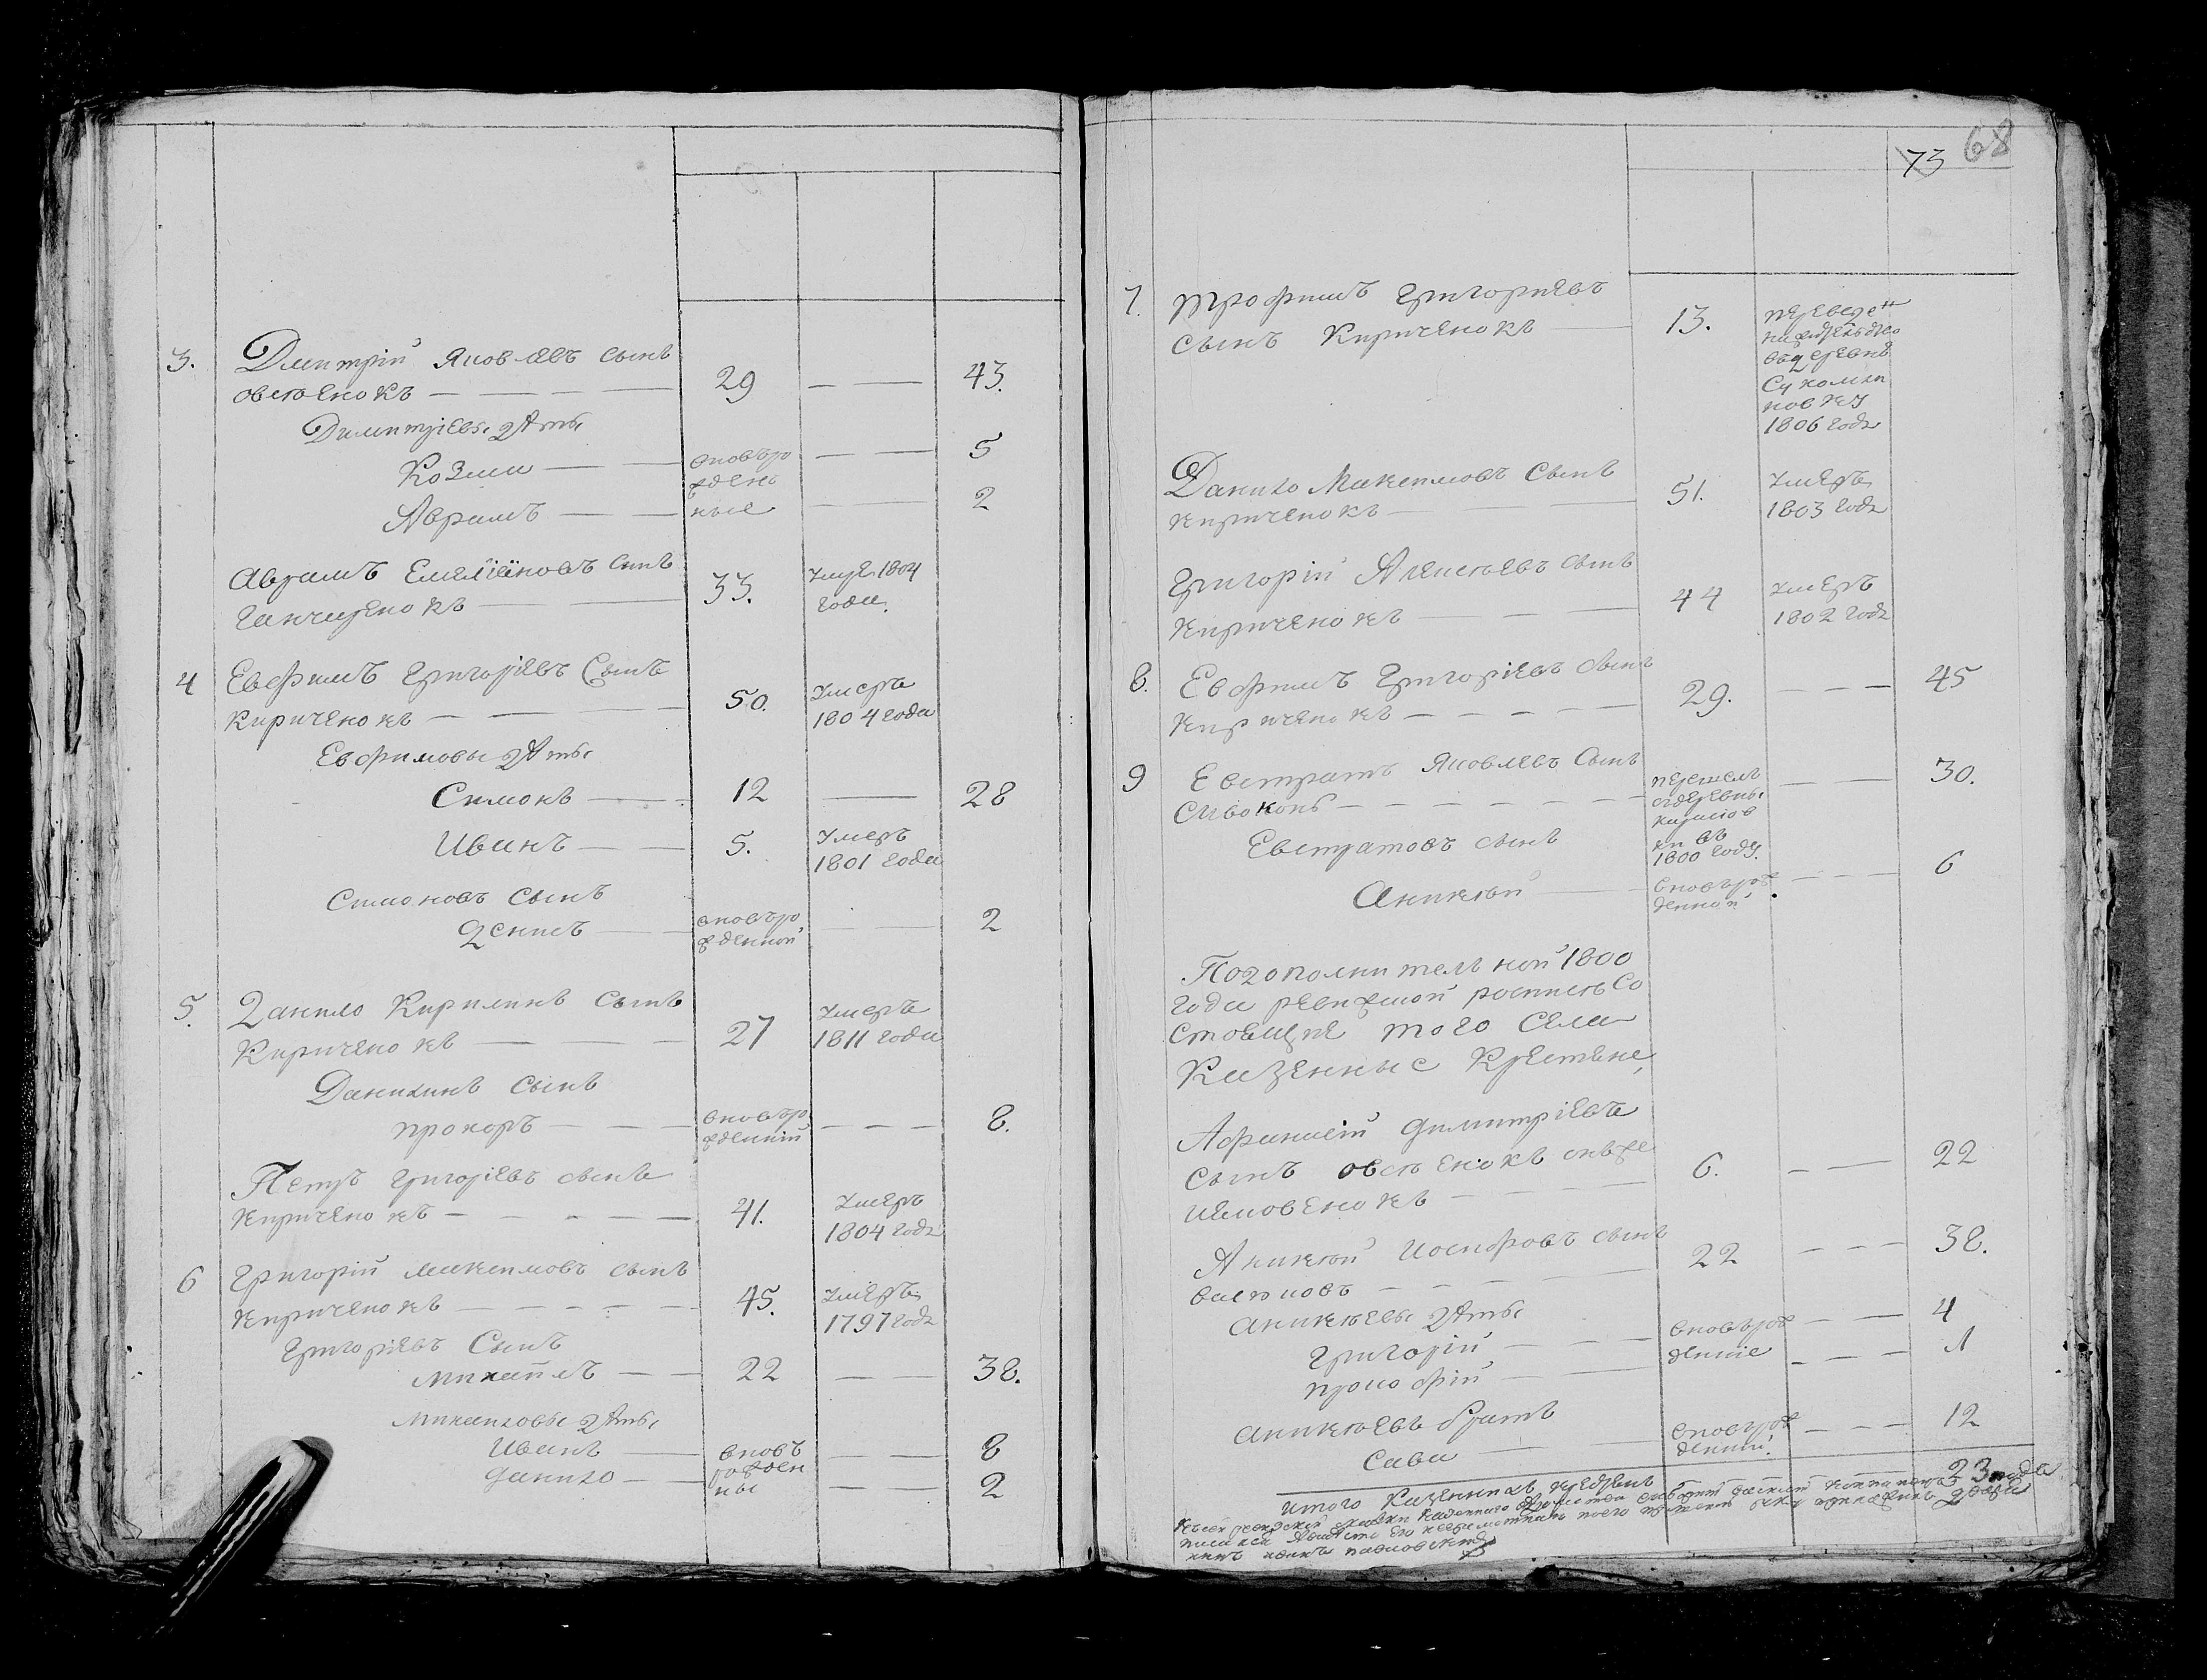 3. Дмитрій Яковлевъ сынъ
овсѣенокъ — 29 — — 43.
Димитріевы дѣти
Козма — вновьро — — 5
жден
Аврамъ — ные — 2
Аврамъ Емеліановъ сынъ
Ганчаренокъ — 33. Умре 1804
года.
4 Евфимъ Григоріевъ Сынъ
Кириченокъ — 50. Умеръ
1804 года
Евфимовы дѣти
Симонъ — 12 — 28
Иванъ — 5. Умеръ
1801 года
Симоновъ сынъ
Денисъ — вновьро — 2
жденной
5. Данило Кирилинъ сынъ
Кириченокъ — 27 Умеръ
1811 года
Данилинъ сынъ
прокоръ — вновьро — 8.
жденній
Петръ григоріевъ сынъ
Кириченокъ — 41. Умеръ
1804 года
6 Григорій максимовъ сынъ
Кириченокъ — 45. Умеръ
1797 года
Григоріевъ Сынъ
михайлъ — 22 — 38.
михаиловы дѣти
Иванъ — вновъ — 8
рожден
данило — ны — 2
73 68
7. трофимъ григоріевъ
сынъ Кириченокъ — 13. переведен
въдеревнѣ
Сукома
новку
1806 года
Данило Максимовъ Сынъ
кириченокъ — 51. Умеръ
1803 года
Григорій Алексѣевъ сынъ
Кириченокъ — 44 Умеръ
1802 года
8. Евфимъ Григоріевъ сынъ
Кириченокъ — 29. — 45
9 Евстратъ Яковлевъ Сынъ
Сивоконь — перешелъ — 30.
здеревны
ки въ
1800 году.
Евстратовъ сынъ
Аникѣй — вновьрож — 6
денной
Подополнительной 1800
года ревижской росписѣ Со
стоящіе того Села
Казенные Крестяне,
Афанасій димитріевъ
сынъ овсѣенокъ онъже
Шановенокъ — 6. — 22
Аникѣй Иосифовъ сынъ
— 22 — 38.
аникѣевы дѣти
Григорій — вновьрож — 4
деніе
прокофій — 1
аникѣевъ братъ
Сава — вновьрож — 12
деній.
итого Казенныхъ 23 года